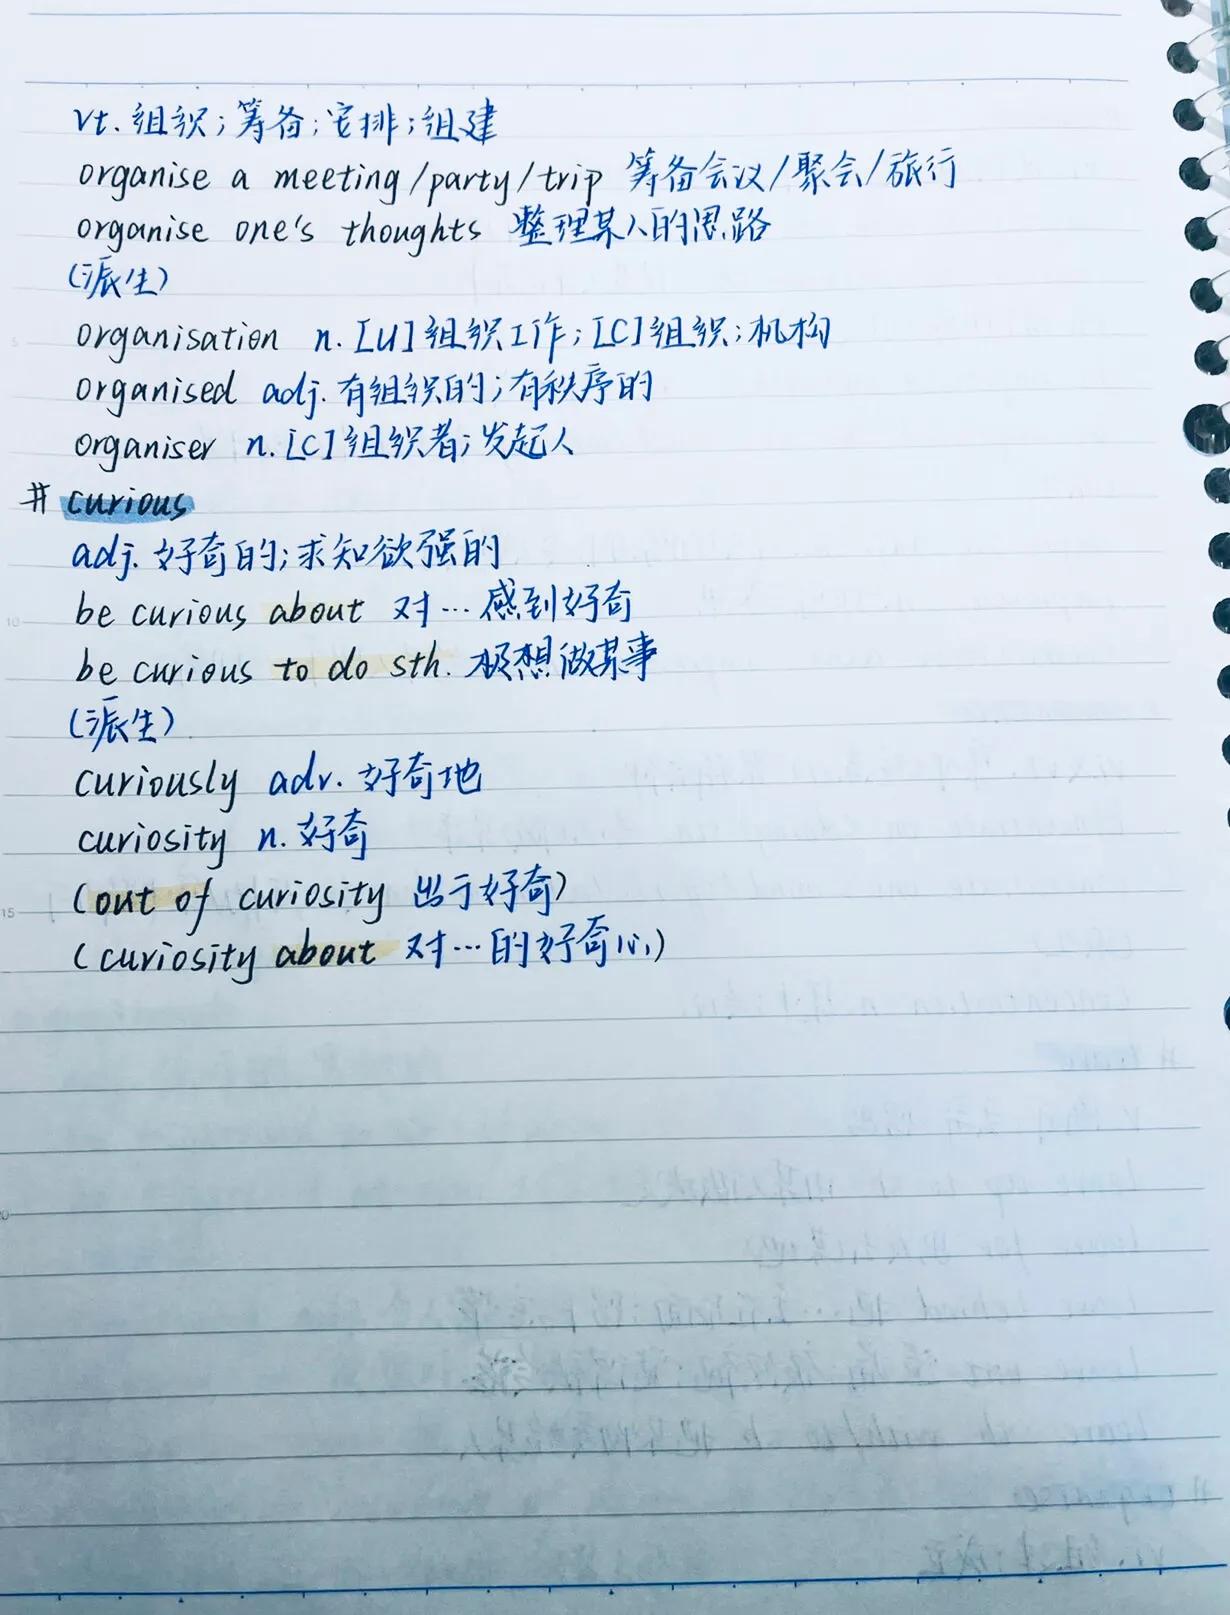 vt. 组织；筹备；安排；组建
organise a meeting/party/trip 筹备会议/聚会/旅行
organise one's thoughts 整理某人的思路
(派生)
organisation n. [U]组织工作；[C]组织；机构
organised adj. 有组织的；有秩序的
organiser n. [C]组织者；发起人
# curious
adj. 好奇的；求知欲强的
be curious about 对…感到好奇
be curious to do sth. 极想做某事
(派生)
curiously adv. 好奇地
curiosity n. 好奇
(out of curiosity 出于好奇)
(curiosity about 对…的好奇心)